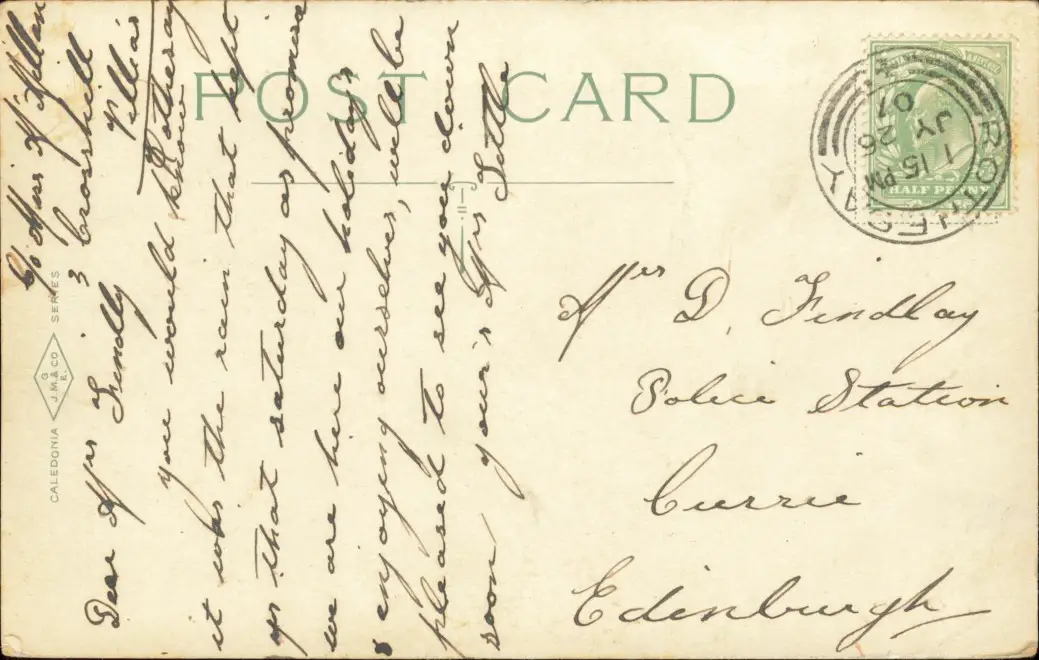 POST CARD
C/o Mrs McMillan
3 Crosshill
Villas
Rothesay
Dear Mrs Findlly
you would know
it was the rain that kept
us that saturday as promise
we are here our holiday's
& enjoying ourselves, will be
pleased to see you down
soon your's Mrs Tettle
CALEDONIA SERIES
G
J.M.& CO
E.
ROTHESAY
1 15 PM
JY 26
07
HALF PENNY
Mrs D. Findlay
Police Station
Currie
Edinburgh